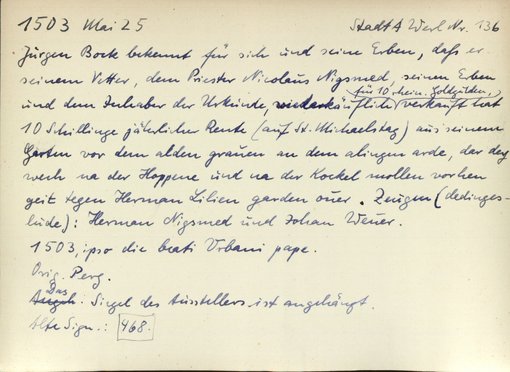 1503 Mai 25 StadtA Werl Nr. 136
Jürgen Bock bekennt für sich und seine Erben, daß er
seinem Vetter, dem Priester Nicolaus Nigsmed, seinen Erben
für 10 rhein. Goldgulden,
und dem Inhaber der Urkunde, wiederkäuflich verkauft hat
10 Schillinge jährlicher Rente (auf St. Michaelstag) aus seinem
Garten vor dem alden grauen an dem alingen arde, dar dey
wech na der Hoppene und na der Kockel mollen vorhen
geit tegen Herman Lilien garden over. Zeugen (dedinges-
lude): Herman Nigsmed und Johan Wever.
1503, ipso die beati Urbani pape.
Orig. Perg.
Das
Siegel des Ausstellers ist angehängt.
Alte Sign.: 468.